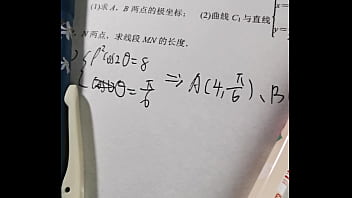 (1)求 A、B 两点的极坐标; (2)曲线 C₁ 与直线 { x=
y=
N 两点，求线段 MN 的长度.
{ ρ²cos2θ=8
θ=π/6 ⇒ A(4,π/6)、B